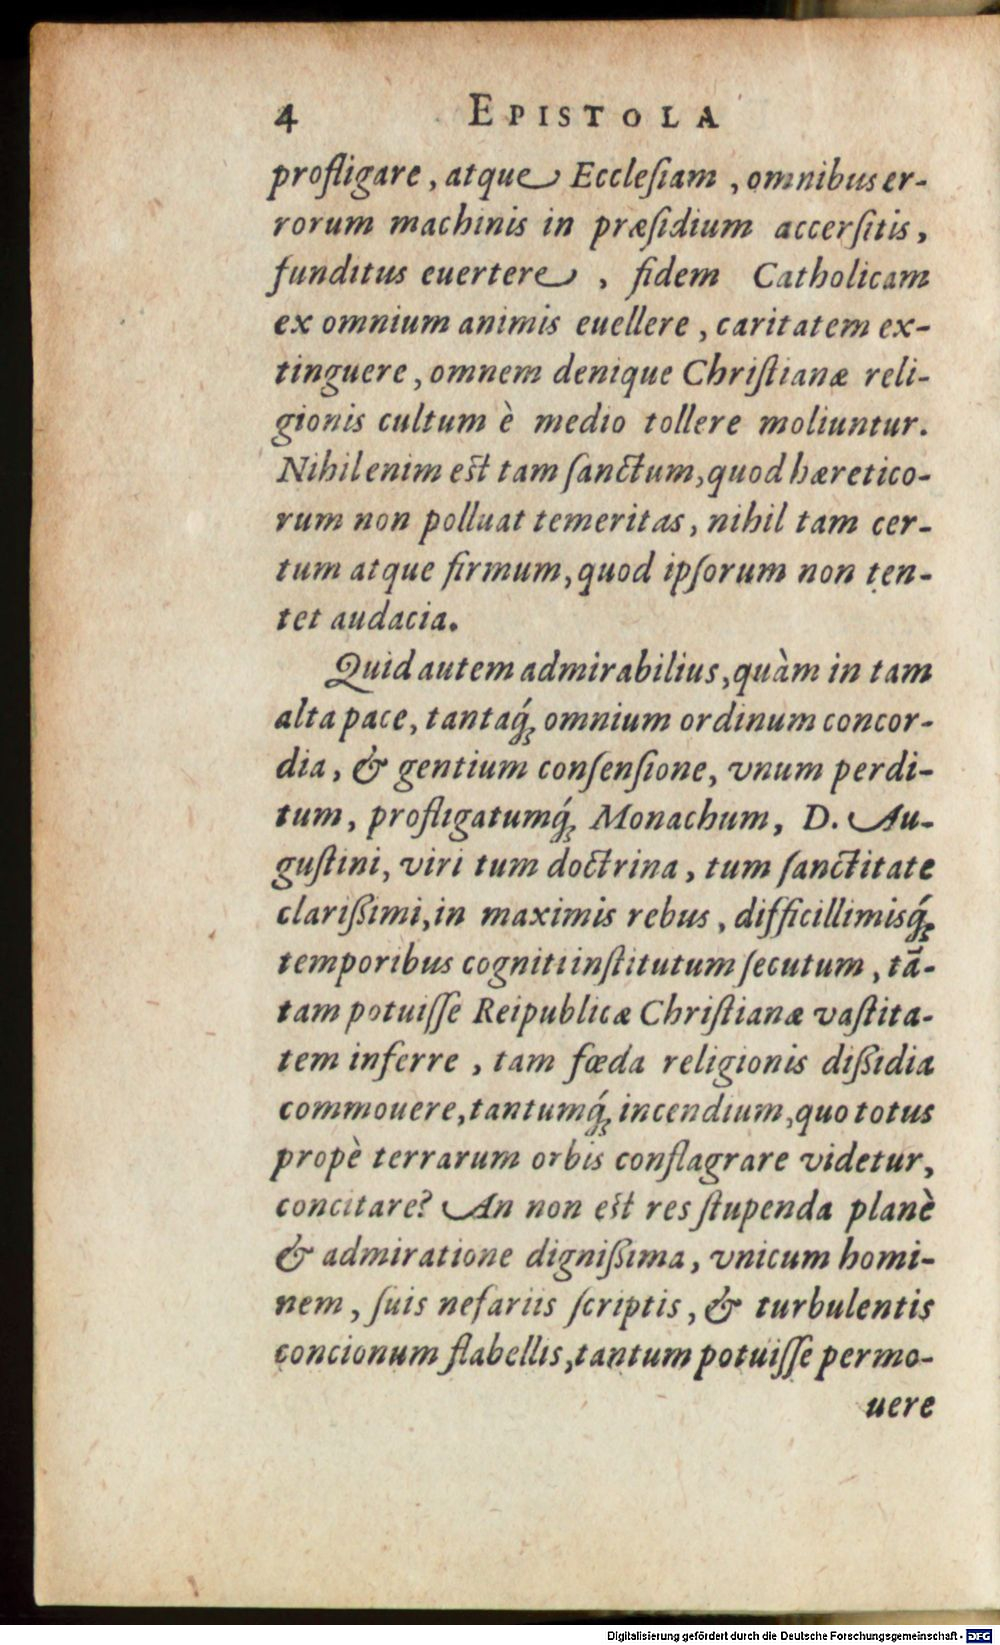 4 EPISTOLA
profligare, atque Eccleſiam, omnibus er-
rorum machinis in præſidium accerſitis,
funditus euertere, fidem Catholicam
ex omnium animis euellere, caritatem ex-
tinguere, omnem denique Chriſtianæ reli-
gionis cultum è medio tollere moliuntur.
Nihil enim eſt tam ſanctum, quod hæretico-
rum non polluat temeritas, nihil tam cer-
tum atque firmum, quod ipſorum non ten-
tet audacia.
Quid autem admirabilius, quàm in tam
alta pace, tantaq́ꝫ omnium ordinum concor-
dia, & gentium conſenſione, vnum perdi-
tum, profligatumq́ꝫ Monachum, D. Au-
guſtini, viri tum doctrina, tum ſanctitate
clarißimi, in maximis rebus, difficillimisq́ꝫ
temporibus cogniti inſtitutum ſecutum, tā-
tam potuiſſe Reipublicæ Chriſtianæ vaſtita-
tem inferre, tam fœda religionis dißidia
commouere, tantumq́ꝫ incendium, quo totus
propè terrarum orbis conflagrare videtur,
concitare? An non eſt res ſtupenda planè
& admiratione dignißima, vnicum homi-
nem, ſuis nefariis ſcriptis, & turbulentis
concionum flabellis, tantum potuiſſe permo-
uere
Digitalisierung gefördert durch die Deutsche Forschungsgemeinschaft - DFG